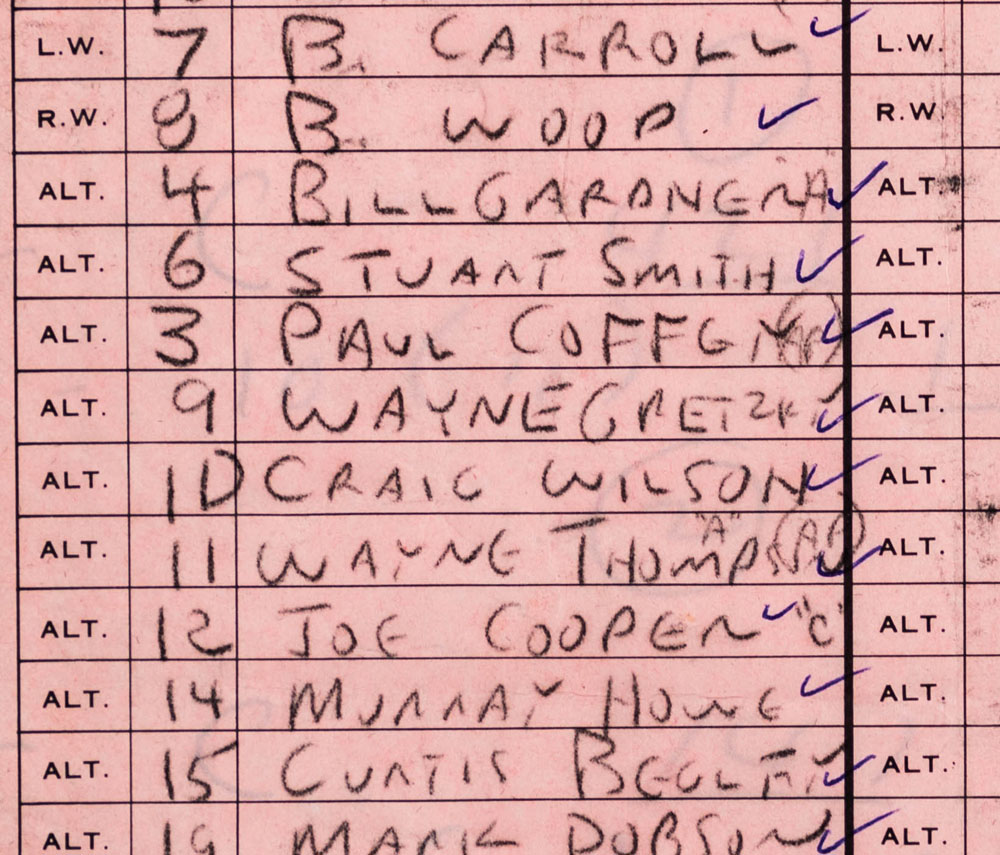 L.W. 7 B. CARROLL L.W.
R.W. 8 B. WOOD. R.W.
ALT. 4 BILL GARDNER "A" ALT.
ALT. 6 STUART SMITH ALT.
ALT. 3 PAUL COFFEY ALT.
ALT. 9 WAYNE GRETZKY ALT.
ALT. 10 CRAIG WILSON ALT.
ALT. 11 WAYNE THOMPSON "A" (AP) ALT.
ALT. 12 JOE COOPER "C" ALT.
ALT. 14 MURRAY HOWE ALT.
ALT. 15 CURTIS ALT.
ALT. MARK DOBSON ALT.